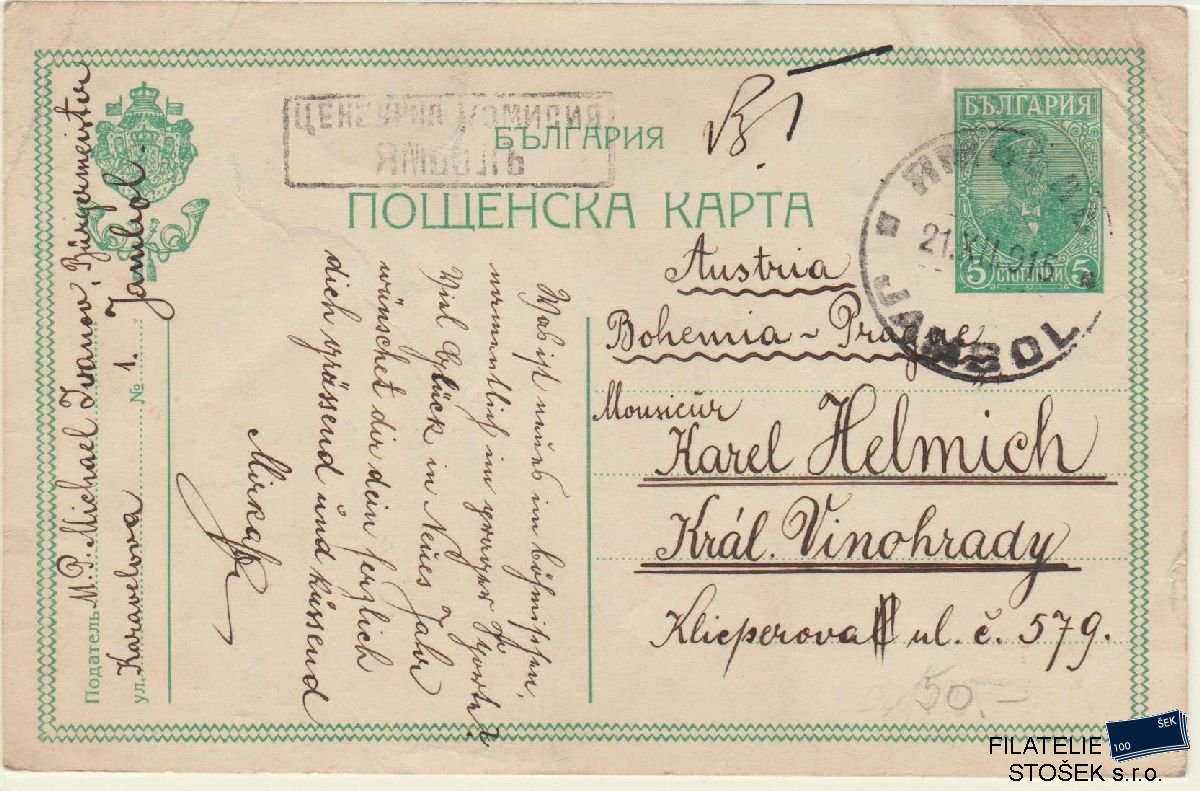 ЦЕНЗУРНА КОМИСИЯ
ЯМБОЛЪ
БЪЛГАРИЯ
ПОЩЕНСКА КАРТА
БЪЛГАРИЯ
5 СТОТИНКИ 5
21.XII.916
JAMBOL
Austria
Bohemia - Prague
Monsieur
Karel Helmich
Král. Vinohrady
Klicperova ul. č. 579.
50.-
Податель M. P. Michael Ivanov, Bürgermeister
ул. Karavelova № 1. Jambol.
Was ist neues im böhmischen,
namentlich im grazer Sporte?
Viel Glück in Neues Jahr
wünschet dir dein herzlich
dich grüssend und küssend
Mirko
FILATELIE
STOŠEK s.r.o.
100 ŠEK